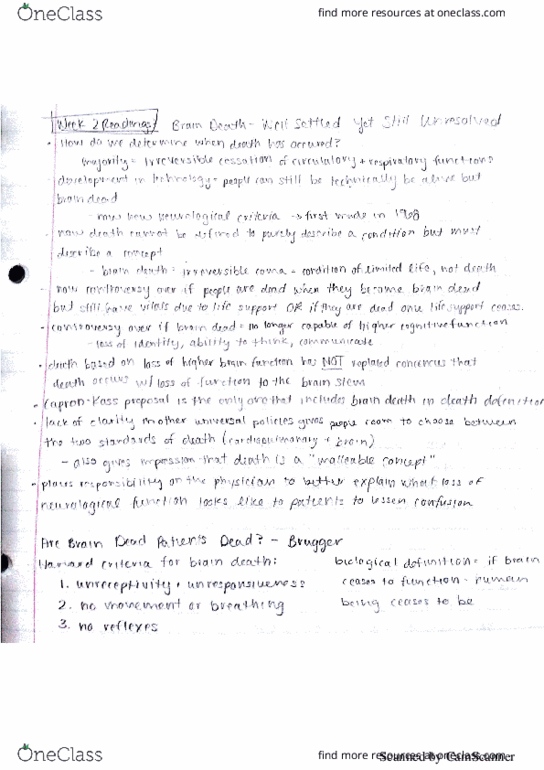 OneClass
find more resources at oneclass.com
Week 2 Readings Brain Death - Well Settled Yet Still Unresolved
• How do we determine when death has occured?
majority = irreversible cessation of circulatory + respiratory function?
• development in technology = people can still be technically be alive but
brain dead
- now have neurological criteria → first made in 1968
• now death cannot be defined to purely describe a condition but must
describe a concept
- brain death = irreversible coma = condition of limited life, not death
• now controversy over if people are dead when they become brain dead
but still have vitals due to life support OR if they are dead once life support ceases.
• controversy over if brain dead = no longer capable of higher cognitive function
- loss of identity, ability to think, communicate
• death based on loss of higher brain function has NOT replaced concensus that
death occurs w/ loss of function to the brain stem
• Capron-Kass proposal is the only one that includes brain death in death definition
• lack of clarity in other universal policies gives people room to choose between
the two standards of death (cardiopulmonary + brain)
- also gives impression that death is a "malleable concept"
• places responsibility on the physician to better explain what loss of
neurological function looks like to patients to lessen confusion
Are Brain Dead Patients Dead? - Brugger
Harvard criteria for brain death:
1. unreceptivity + unresponsiveness
2. no movement or breathing
3. no reflexes
biological definition = if brain
ceases to function - human
being ceases to be
OneClass
find more resources at oneclass.com
Scanned by CamScanner